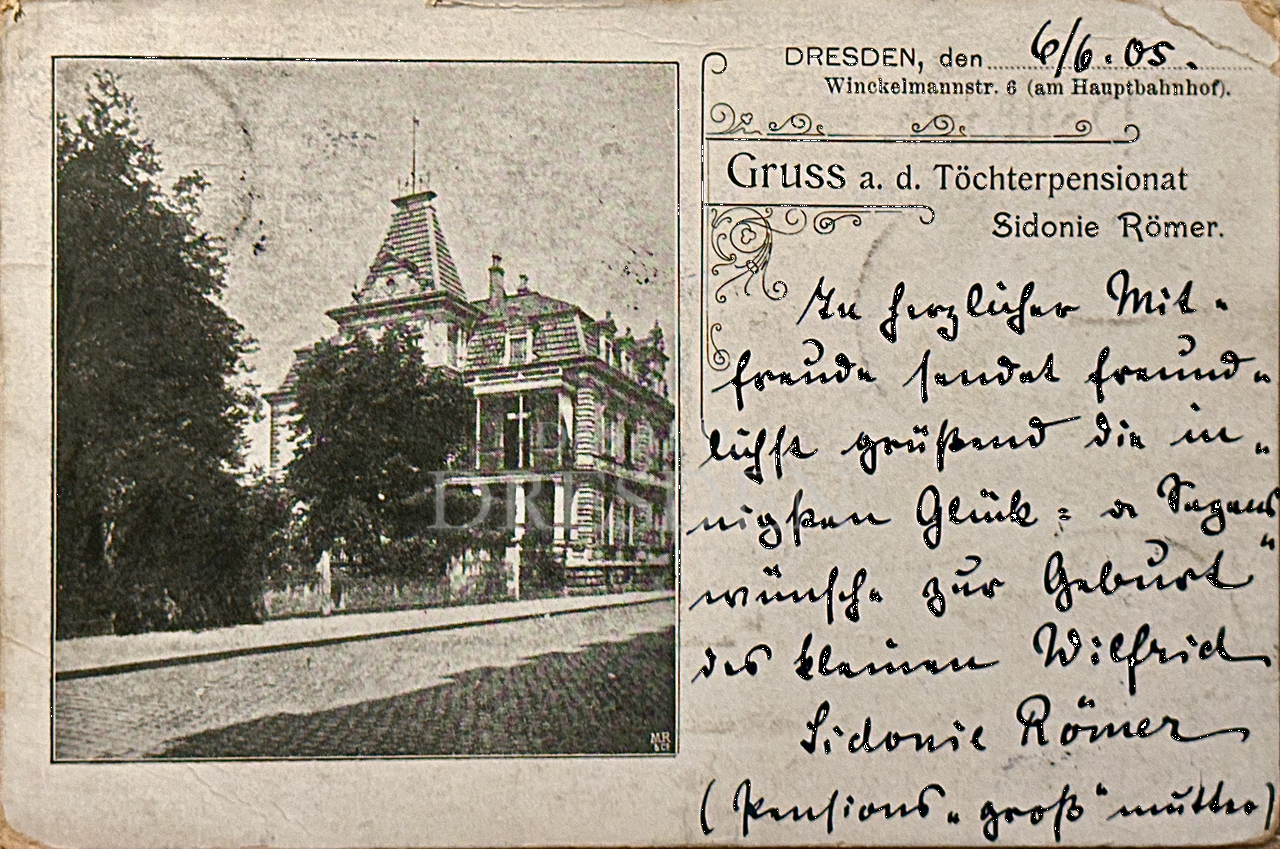 DRESDEN, den 6/6.05.
Winckelmannstr. 6 (am Hauptbahnhof).
Gruss a. d. Töchterpensionat
Sidonie Römer.
In herzlicher Mit-
freude sendet freund-
lichst grüßend die in-
nigsten Glück= u Segens-
wünsche zur Geburt
des kleinen Wilfrid
Sidonie Römer
(Pensions-„groß"mutter)
DRESD
MR
& Co